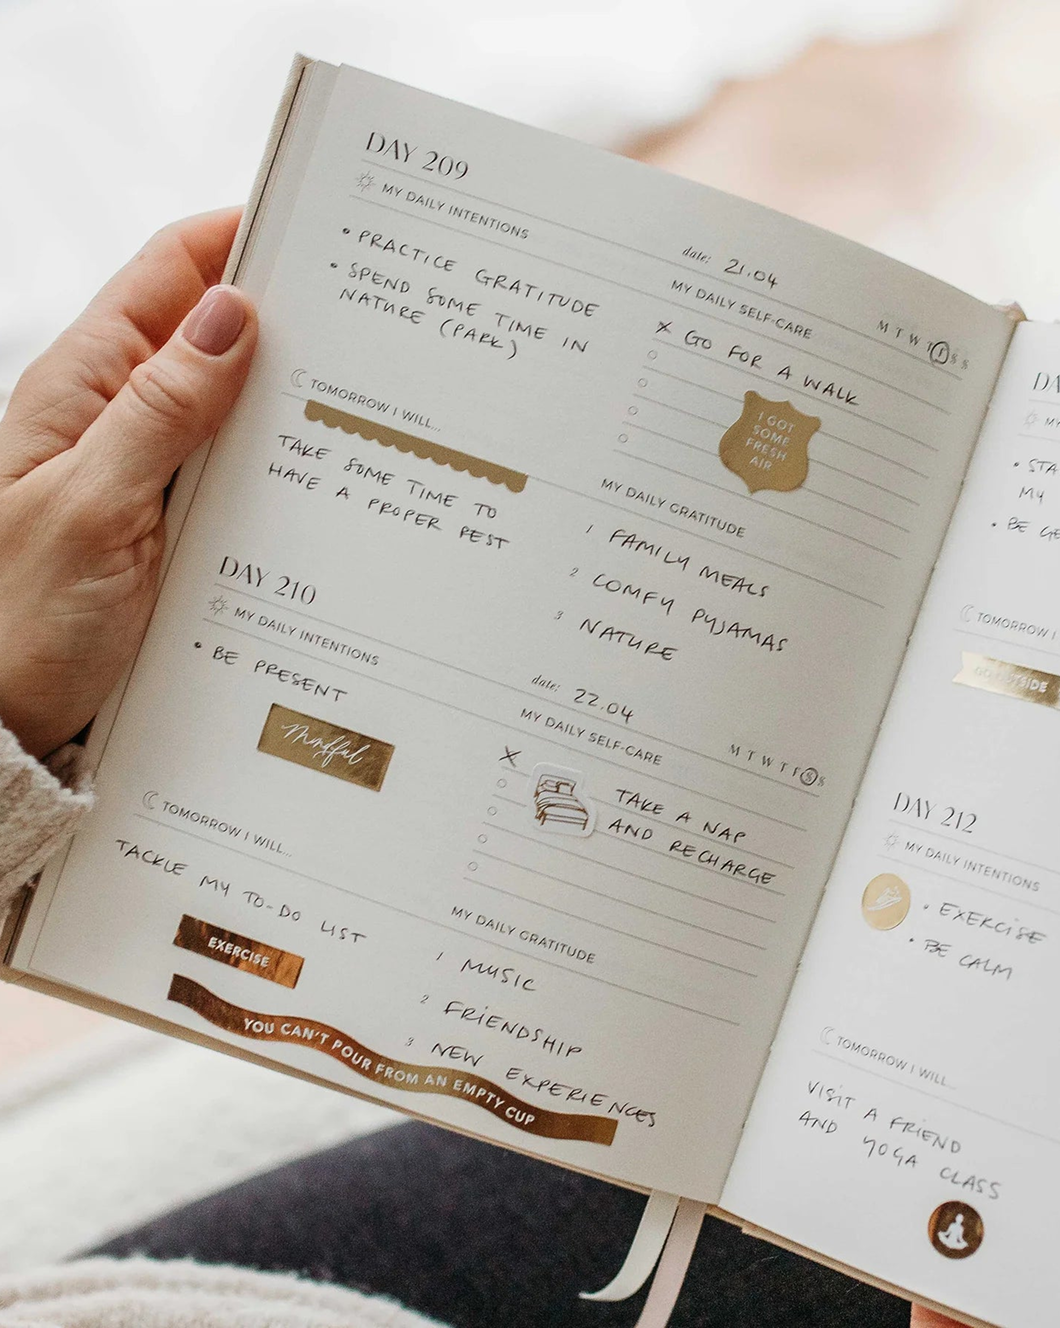 DAY 209
MY DAILY INTENTIONS
• PRACTICE GRATITUDE
• SPEND SOME TIME IN
NATURE (PARK)
TOMORROW I WILL...
TAKE SOME TIME TO
HAVE A PROPER REST
date: 21.04
MY DAILY SELF-CARE
M T W T F S S
X GO FOR A WALK
I GOT
SOME
FRESH
AIR
MY DAILY GRATITUDE
1 FAMILY MEALS
2 COMFY PYJAMAS
3 NATURE
DAY 210
MY DAILY INTENTIONS
• BE PRESENT
Mindful
TOMORROW I WILL...
TACKLE MY TO-DO LIST
EXERCISE
YOU CAN'T POUR FROM AN EMPTY CUP
date: 22.04
MY DAILY SELF-CARE
M T W T F S S
X TAKE A NAP
AND RECHARGE
MY DAILY GRATITUDE
1 MUSIC
2 FRIENDSHIP
3 NEW EXPERIENCES
DA
MY
• STA
MY
• BE GE
TOMORROW I
GO OUTSIDE
DAY 212
MY DAILY INTENTIONS
• EXERCISE
• BE CALM
TOMORROW I WILL...
VISIT A FRIEND
AND YOGA CLASS